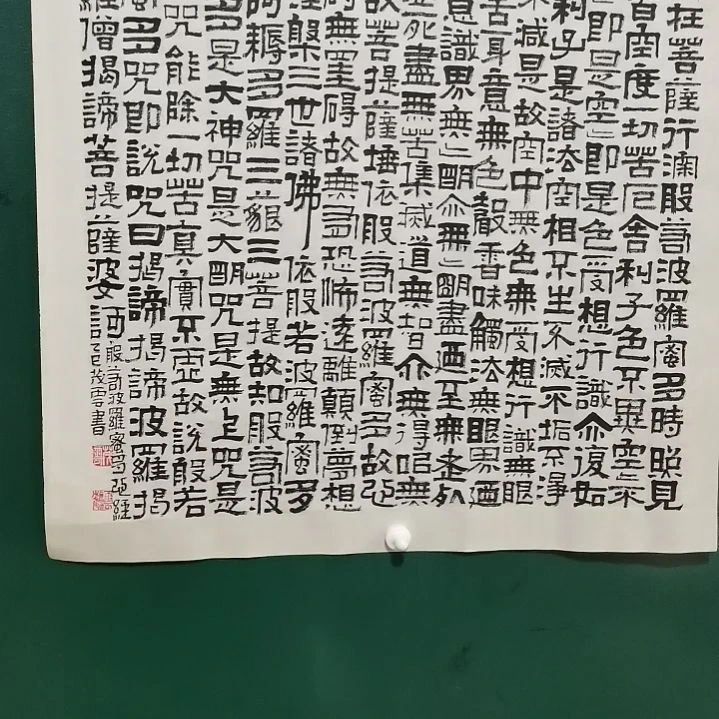 在菩薩行深般若波羅蜜多時照見
皆空度一切苦厄舍利子色不異空=不
即是空=即是色受想行識亦復如
利子是諸法空相不生不滅不垢不淨
不減是故空中無色無受想行識無眼
舌身意無色聲香味觸法無眼界迺
意識界無=明亦無=明盡迺至無老死
老死盡無苦集滅道無智亦無得以無
故菩提薩埵依般若波羅蜜多故心
礙無罣礙故無有恐怖遠離顛倒夢想
涅槃三世諸佛依般若波羅蜜多
阿耨多羅三藐三菩提故知般若波
多是大神咒是大明咒是無上咒是
咒能除一切苦真實不虛故說般若
蜜多咒即說咒曰揭諦揭諦波羅揭
羅僧揭諦菩提薩婆訶
般若波羅蜜多心經
書